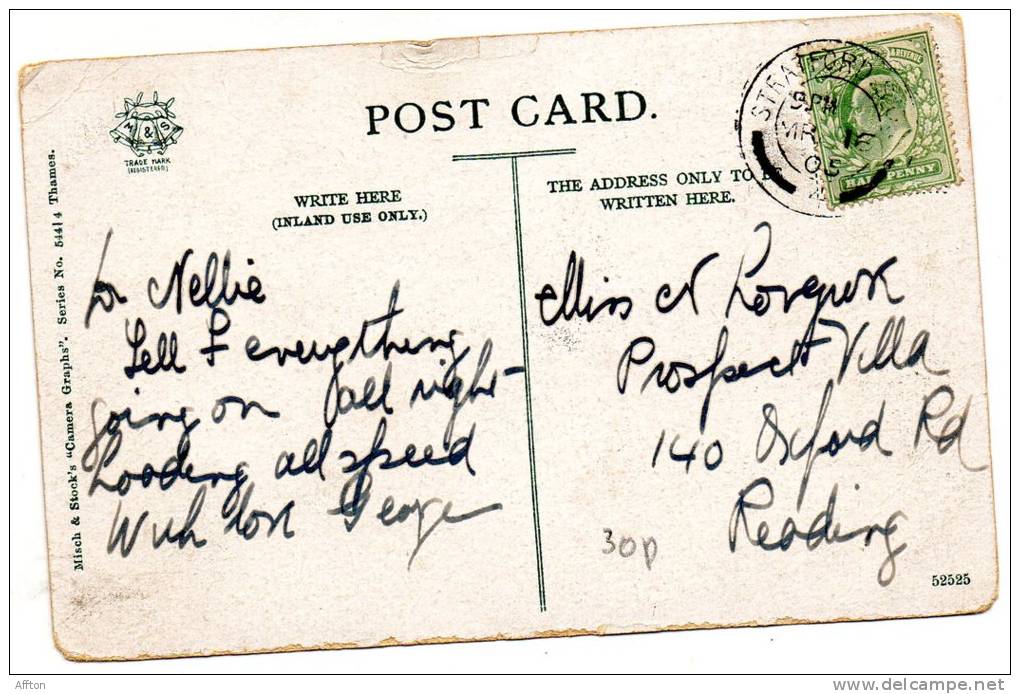 POST CARD.
M & S
TRADE MARK
(REGISTERED)
WRITE HERE
(INLAND USE ONLY.)
THE ADDRESS ONLY TO BE
WRITTEN HERE.
STRATFORD
MR 15
05
& REVENUE
HALFPENNY
Misch & Stock's "Camera Graphs". Series No. 544/4 Thames.
Nellie
Tell F everything
going on all right
Loading all speed
With love George
Miss N
Prospect Villa
140 Oxford Rd
Reading
30p
52525
Affton
www.delcampe.net